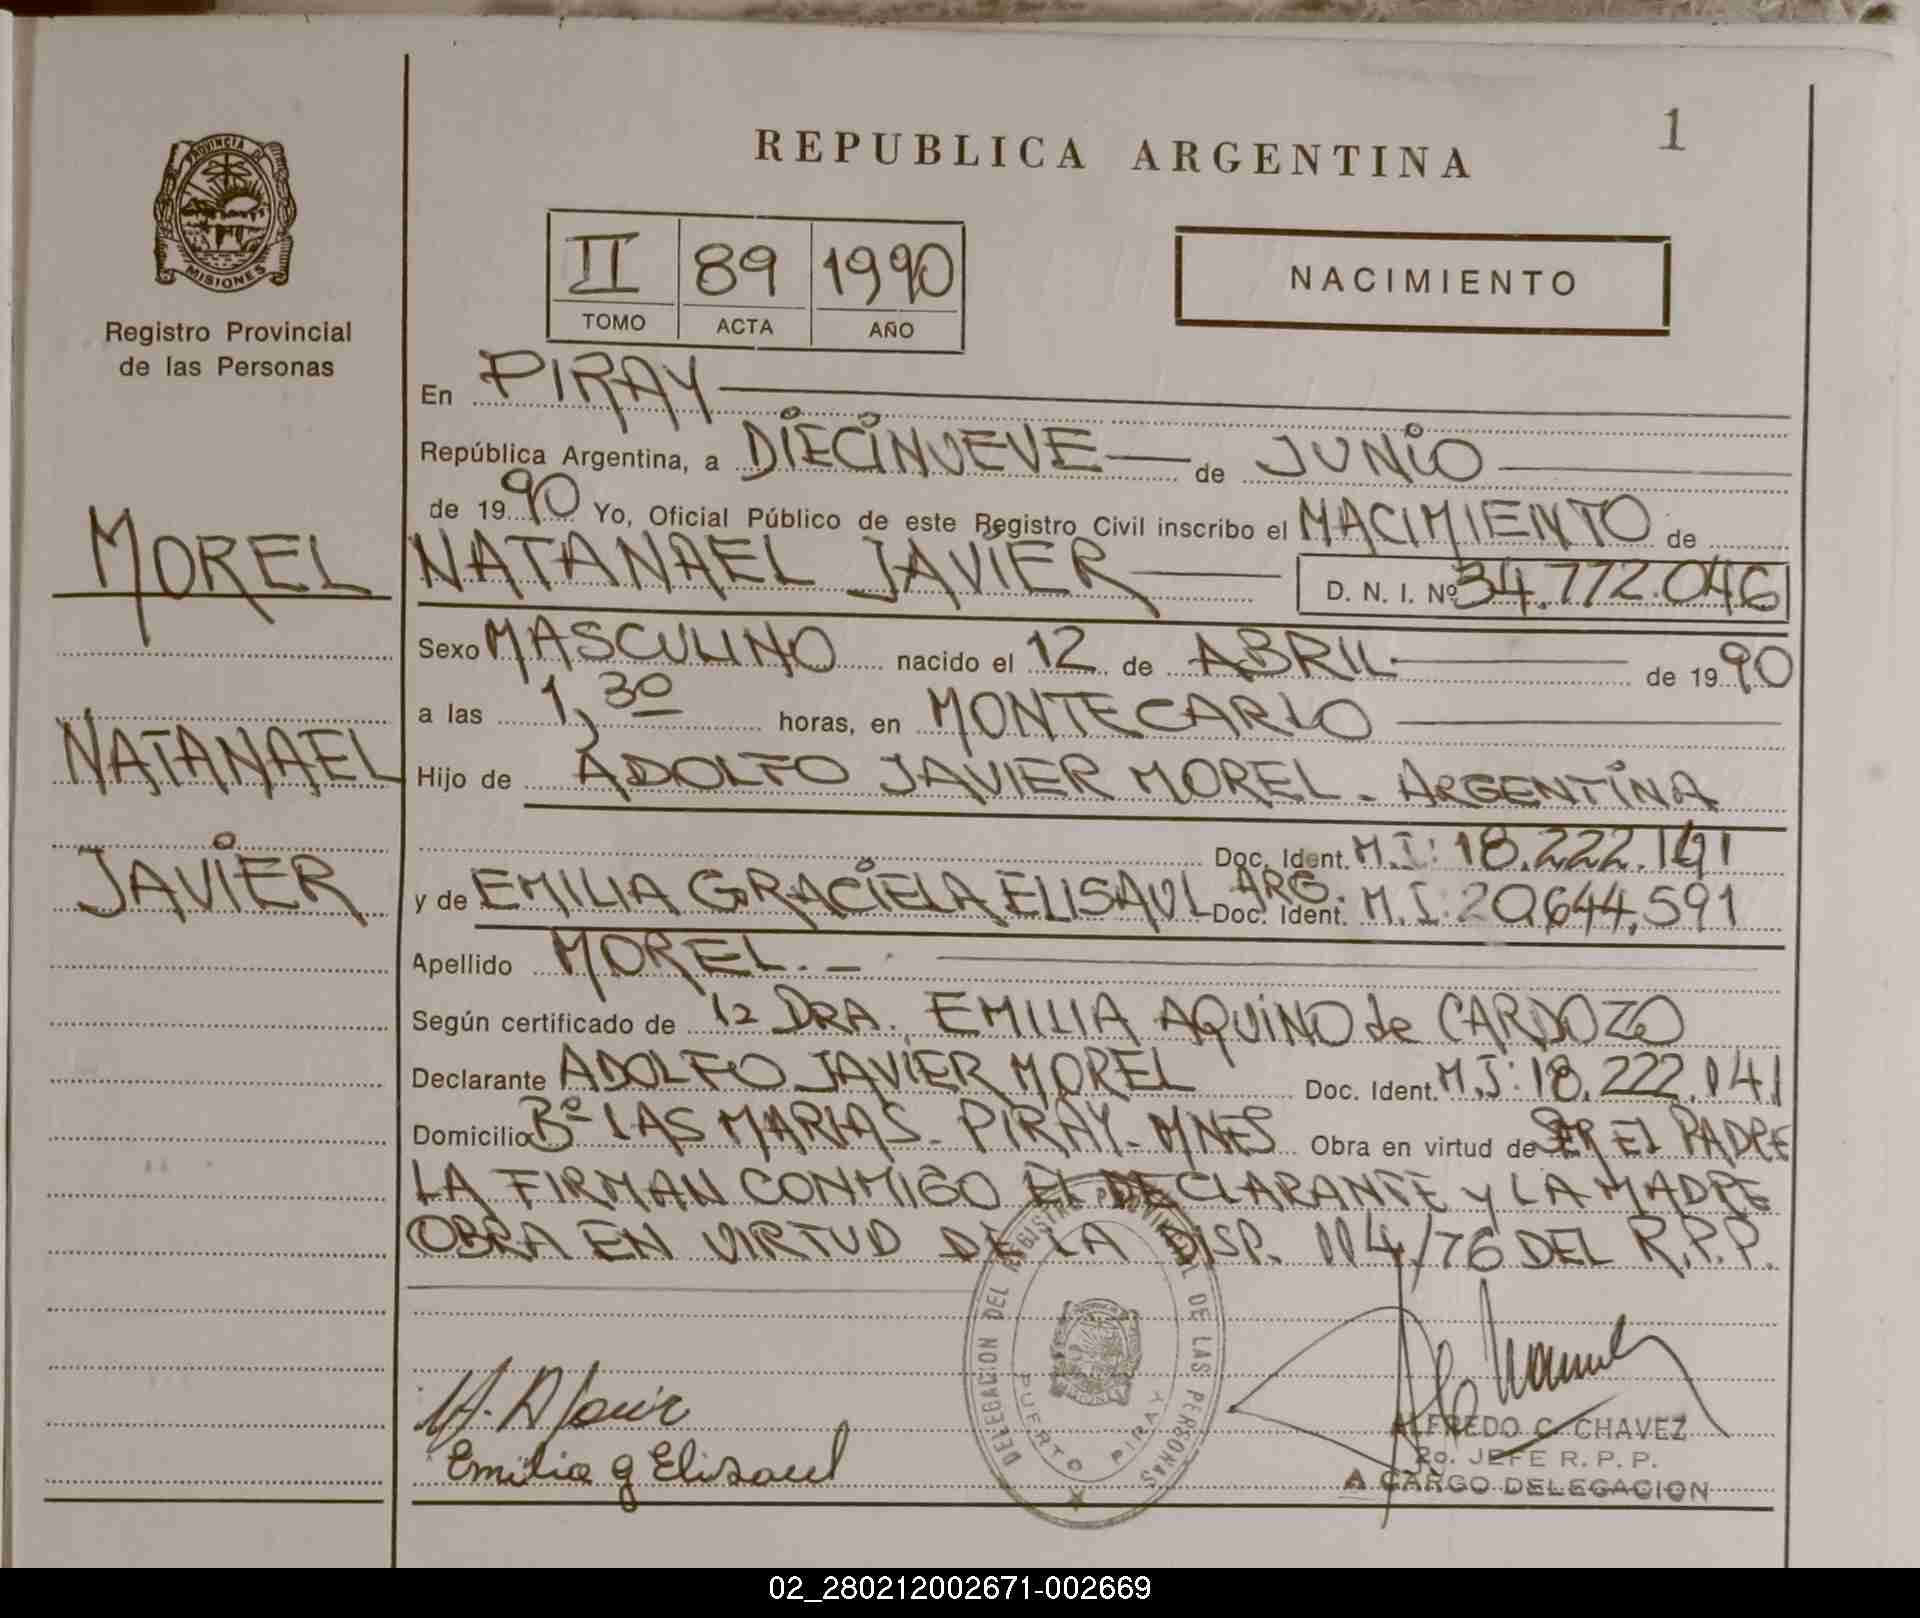 REPUBLICA ARGENTINA
1
PROVINCIA DE
MISIONES
Registro Provincial
de las Personas
II 89 1990
TOMO ACTA AÑO
NACIMIENTO
En PIRAY
República Argentina, a DIECINUEVE de JUNIO
de 1990 Yo, Oficial Público de este Registro Civil inscribo el NACIMIENTO de
MOREL
NATANAEL JAVIER D. N. I. Nº 34.772.046
Sexo MASCULINO nacido el 12 de ABRIL de 1990
a las 1,30 horas, en MONTECARLO
NATANAEL
Hijo de ADOLFO JAVIER MOREL - ARGENTINA
JAVIER
Doc. Ident. M.I: 18.222.141
y de EMILIA GRACIELA ELISAUL ARG. Doc. Ident. M.I. 20.644.591
Apellido MOREL.-
Según certificado de la DRA. EMILIA AQUINO de CARDOZO
Declarante ADOLFO JAVIER MOREL Doc. Ident. M.I: 18.222.141
Domicilio Bº LAS MARIAS - PIRAY - MNES Obra en virtud de SER EL PADRE
LA FIRMAN CONMIGO EL DECLARANTE y LA MADRE
OBRA EN VIRTUD DE LA DISP. 114/76 DEL R.P.P.
DELEGACION DEL REGISTRO PROVINCIAL DE LAS PERSONAS
PUERTO PIRAY
Emilia g Elisaul
ALFREDO C. CHAVEZ
2o. JEFE R. P. P.
A CARGO DELEGACION
02_280212002671-002669